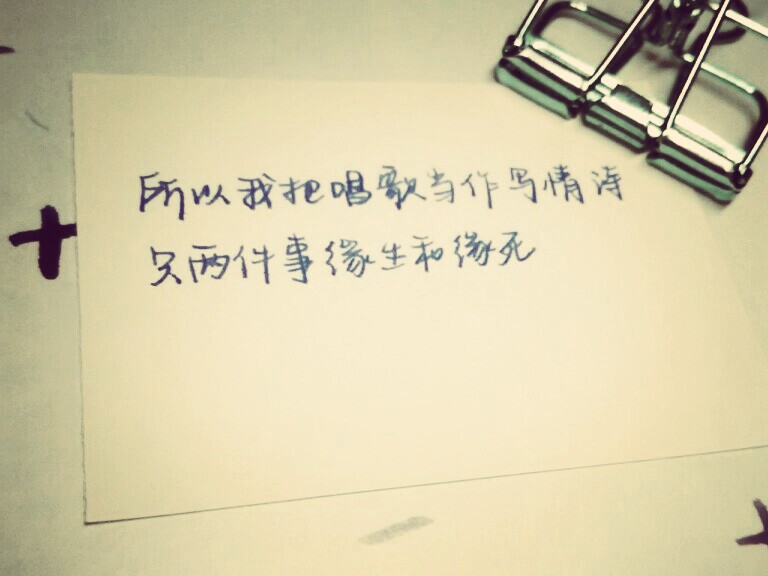 所以我把唱歌当作写情诗
只两件事缘生和缘死